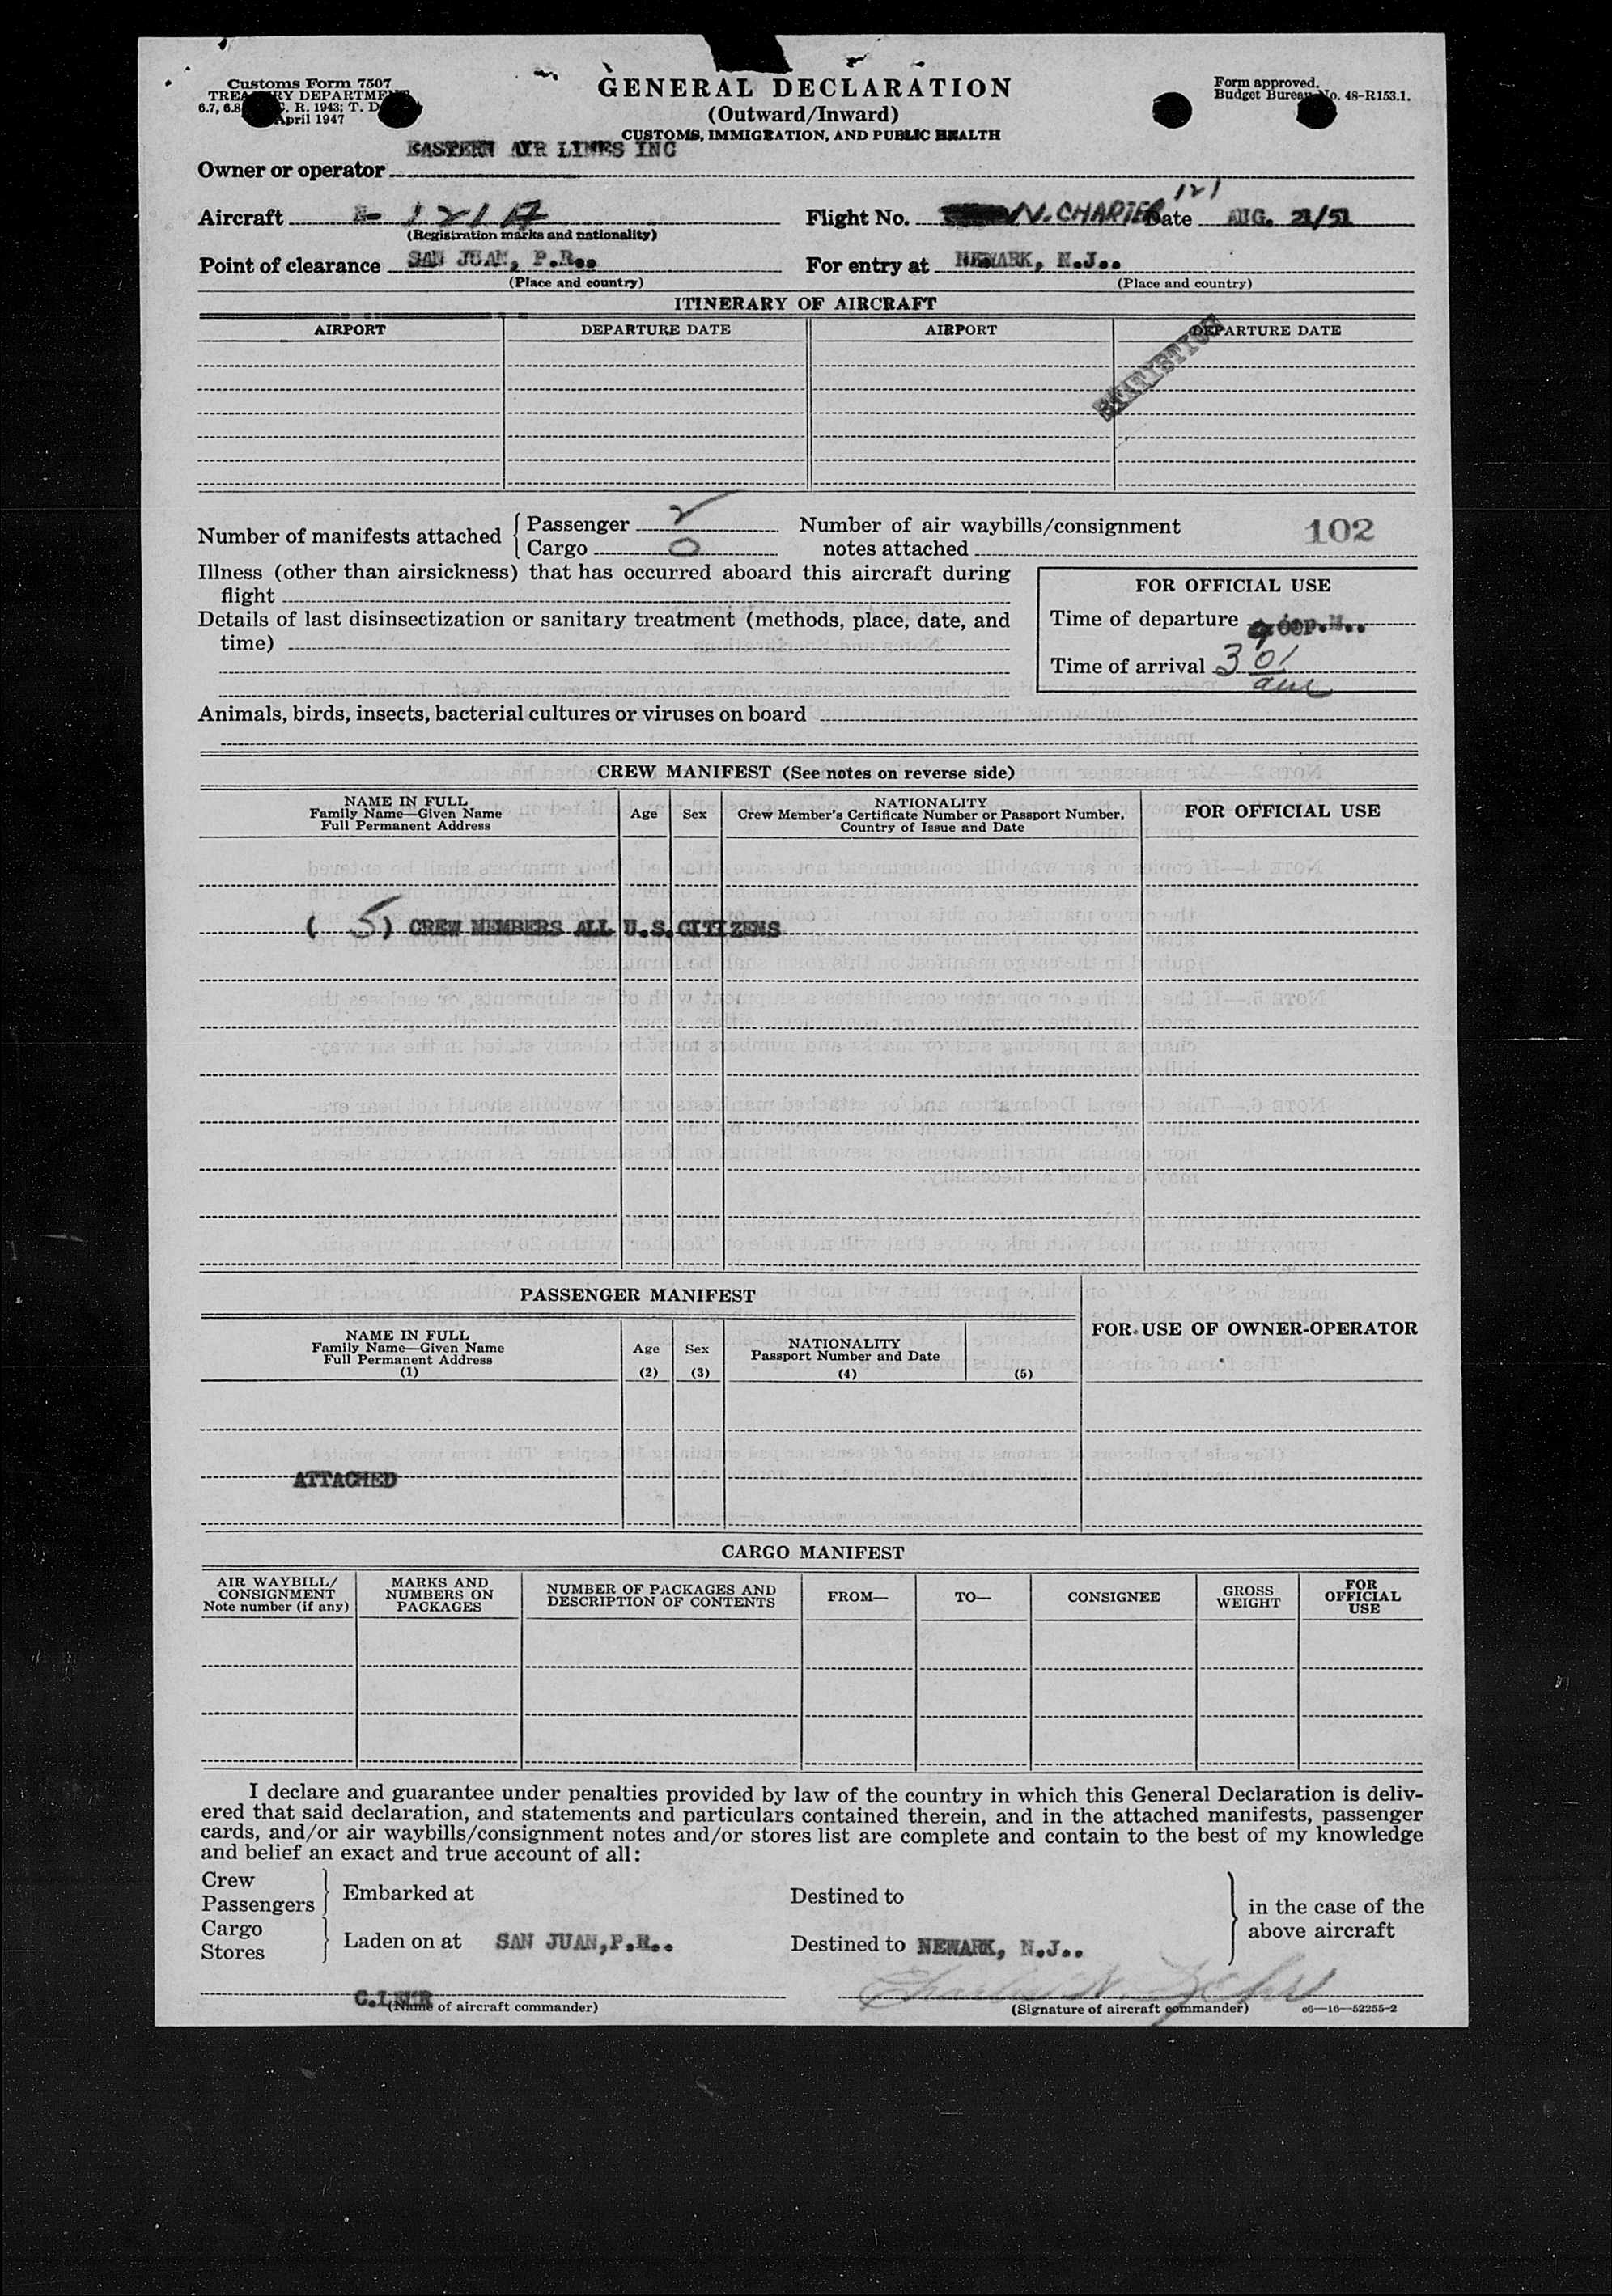 Customs Form 7507
TREASURY DEPARTMENT
6.7, 6.8, C. R. 1943; T. D.
April 1947
GENERAL DECLARATION
(Outward/Inward)
CUSTOMS, IMMIGRATION, AND PUBLIC HEALTH
Form approved.
Budget Bureau No. 48-R153.1.
Owner or operator EASTERN AIR LINES INC
Aircraft N- 121A
(Registration marks and nationality)
Flight No. N. CHARTER 121 Date AUG. 21/51
Point of clearance SAN JUAN, P.R..
(Place and country)
For entry at NEWARK, N.J..
(Place and country)
ITINERARY OF AIRCRAFT
AIRPORT DEPARTURE DATE AIRPORT DEPARTURE DATE
STATISTICS
Number of manifests attached { Passenger 2
Cargo 0
Number of air waybills/consignment
notes attached
102
Illness (other than airsickness) that has occurred aboard this aircraft during
flight
Details of last disinsectization or sanitary treatment (methods, place, date, and
time)
FOR OFFICIAL USE
Time of departure P.M..
Time of arrival 3 01
am
Animals, birds, insects, bacterial cultures or viruses on board
CREW MANIFEST (See notes on reverse side)
NAME IN FULL
Family Name—Given Name
Full Permanent Address
Age
Sex
NATIONALITY
Crew Member's Certificate Number or Passport Number,
Country of Issue and Date
FOR OFFICIAL USE
( 5 ) CREW MEMBERS ALL U.S. CITIZENS
PASSENGER MANIFEST
NAME IN FULL
Family Name—Given Name
Full Permanent Address
(1)
Age
(2)
Sex
(3)
NATIONALITY
Passport Number and Date
(4)
(5)
FOR USE OF OWNER-OPERATOR
ATTACHED
CARGO MANIFEST
AIR WAYBILL/
CONSIGNMENT
Note number (if any)
MARKS AND
NUMBERS ON
PACKAGES
NUMBER OF PACKAGES AND
DESCRIPTION OF CONTENTS
FROM—
TO—
CONSIGNEE
GROSS
WEIGHT
FOR
OFFICIAL
USE
I declare and guarantee under penalties provided by law of the country in which this General Declaration is deliv-
ered that said declaration, and statements and particulars contained therein, and in the attached manifests, passenger
cards, and/or air waybills/consignment notes and/or stores list are complete and contain to the best of my knowledge
and belief an exact and true account of all:
Crew
Passengers } Embarked at Destined to
Cargo
Stores } Laden on at SAN JUAN, P.R.. Destined to NEWARK, N.J..
in the case of the
above aircraft
(Name of aircraft commander)
(Signature of aircraft commander)
c6—16—52255-2